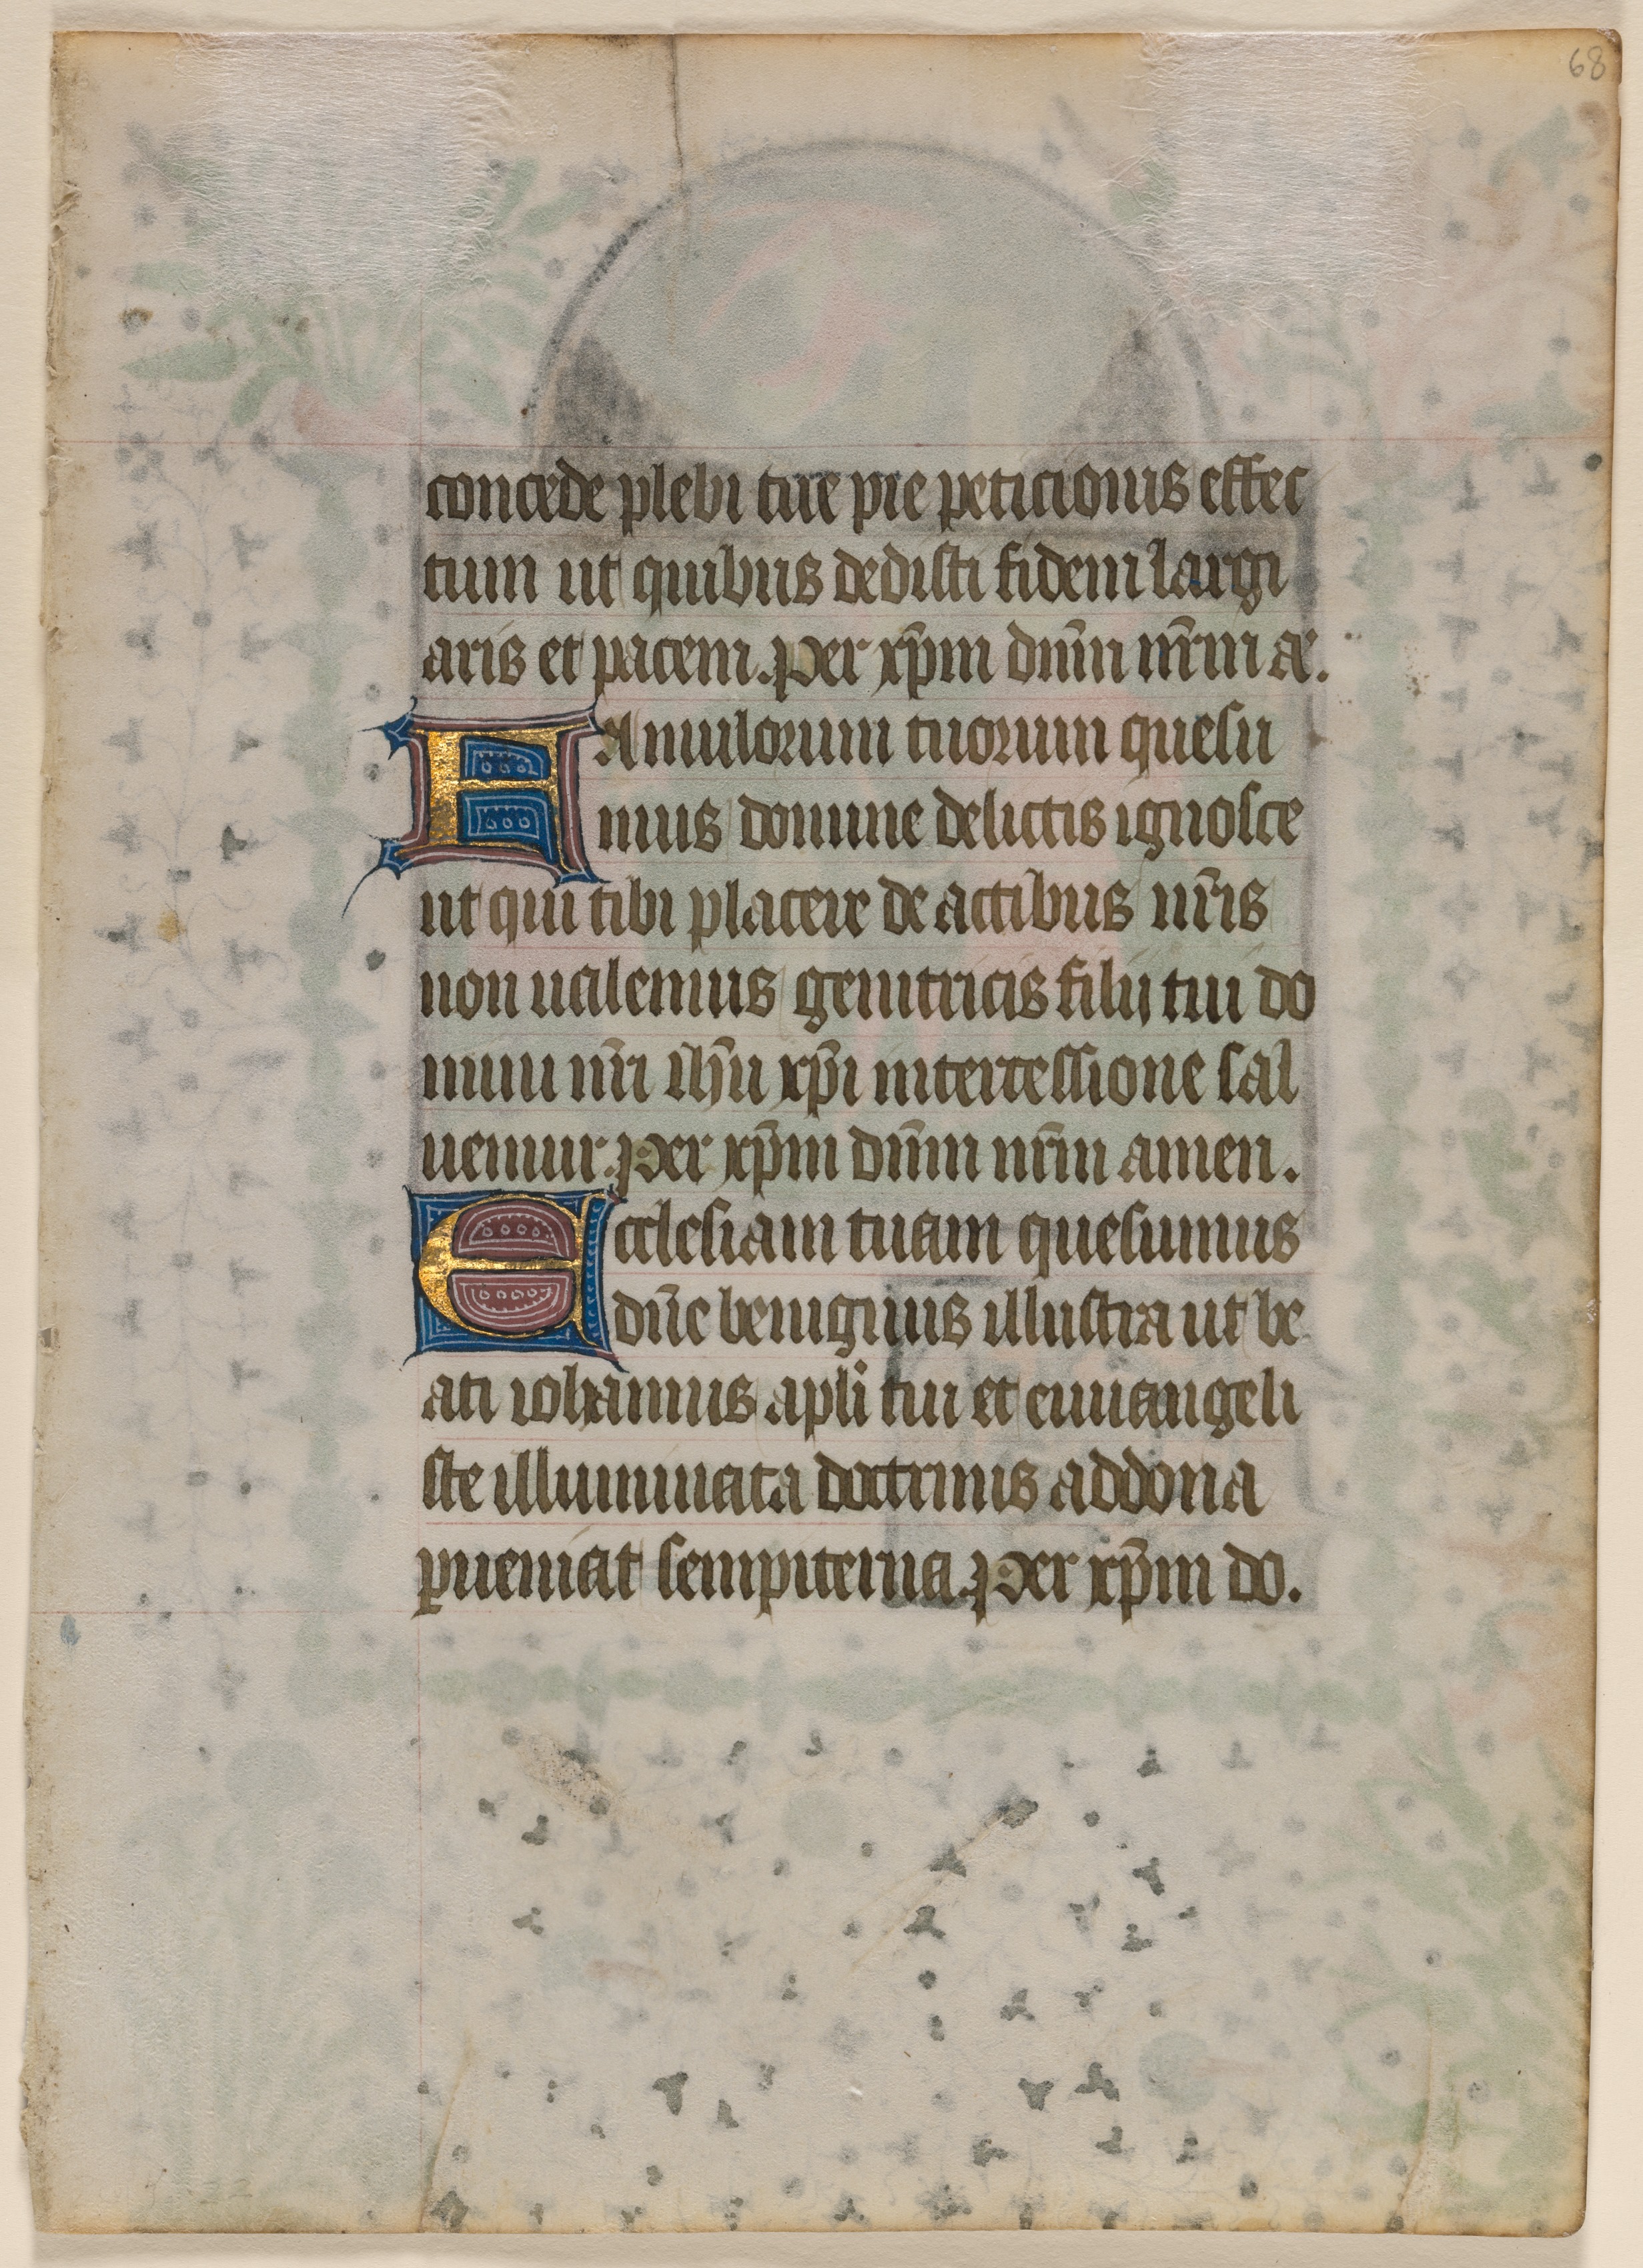 68
concede plebi tue pie peticionis effec
tum ut quibus dedisti fidem largi
aris et pacem. Per xp̄m dn̄m nr̄m ae.
FAmulorum tuorum quesu
mus domine delictis ignosce
ut qui tibi placere de actibus nr̄is
non ualemus genitricis filij tui do
mini nr̄i ih̄u xp̄i intercessione sal
uemur. Per xp̄m dn̄m nr̄m amen.
Ecclesiam tuam quesumus
dn̄e benignus illustra ut be
ati iohannis apli tui et euuangeli
ste illuminata doctrinis ad dona
ꝑueniat sempiterna. Per xp̄m do.